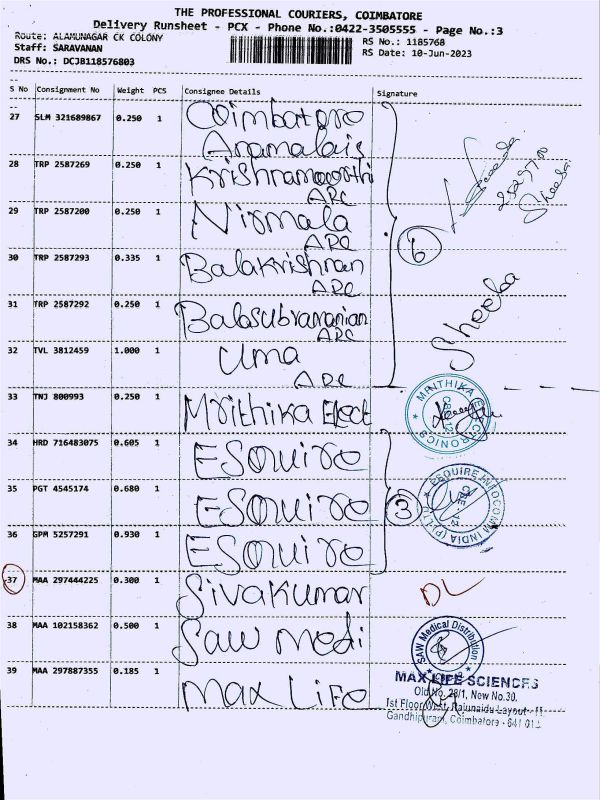 THE PROFESSIONAL COURIERS, COIMBATORE
Delivery Runsheet - PCX - Phone No.:0422-3505555 - Page No.:3
Route: ALAMUNAGAR CK COLONY
RS No.: 1185768
Staff: SARAVANAN
RS Date: 10-Jun-2023
DRS No.: DCJB118576803
S No Consignment No Weight PCS Consignee Details Signature
27 SLM 321689867 0.250 1 Coimbatore
Anamalais
28 TRP 2587269 0.250 1 Krishnamoorthi
ARC
29 TRP 2587200 0.250 1 Nirmala
ARC
30 TRP 2587293 0.335 1 Balakrishnan
ARC
31 TRP 2587292 0.250 1 Balasubramanian
ARC
32 TVL 3812459 1.000 1 Uma
ARC
6
Sheeba
Sheeba
33 TNJ 800993 0.250 1 Mrithika Elect
MRITHIKA ELECTRONICS
CBE-12
34 HRD 716483075 0.605 1 ESquire
35 PGT 4545174 0.680 1 ESquire
3
ESQUIRE INFOCOMM INDIA (P) LTD
CBE-12
36 GPM 5257291 0.930 1 ESquire
37 MAA 297444225 0.300 1 Sivakumar
DL
38 MAA 102158362 0.500 1 Saw Medi
SAW Medical Distribution
39 MAA 297887355 0.185 1 Max Life
MAX LIFE SCIENCES
Old No. 28/1, New No.30,
1st Floor West, Rajunaidu Layout
Gandhipuram, Coimbatore - 641 012